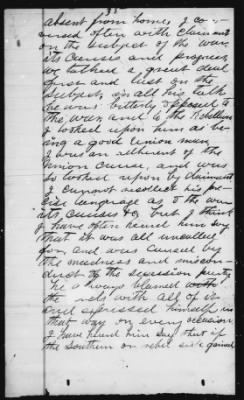 absent from home, I co-
versed often with claimant
on the subject of the war,
its causes and progress,
we talked a great deal
first and last on the
subject, in all his talk
he was bitterly opposed to
the war, and to the Rebellion
I looked upon him as be-
ing a good union man,
I was an adherent of the
union cause, and was
so looked upon by claimant
I cannot recollect his pre-
cise language as to the war
its, causes &c but I think
I have often heard him say
that it was all uncalled
for and was caused by
the meanness and miscon-
duct of the secession party
he always blamed with
the rebs with all of it
and expressed himself in
that way on every occasion,
I have heard him say that if
the southern or rebel side gained